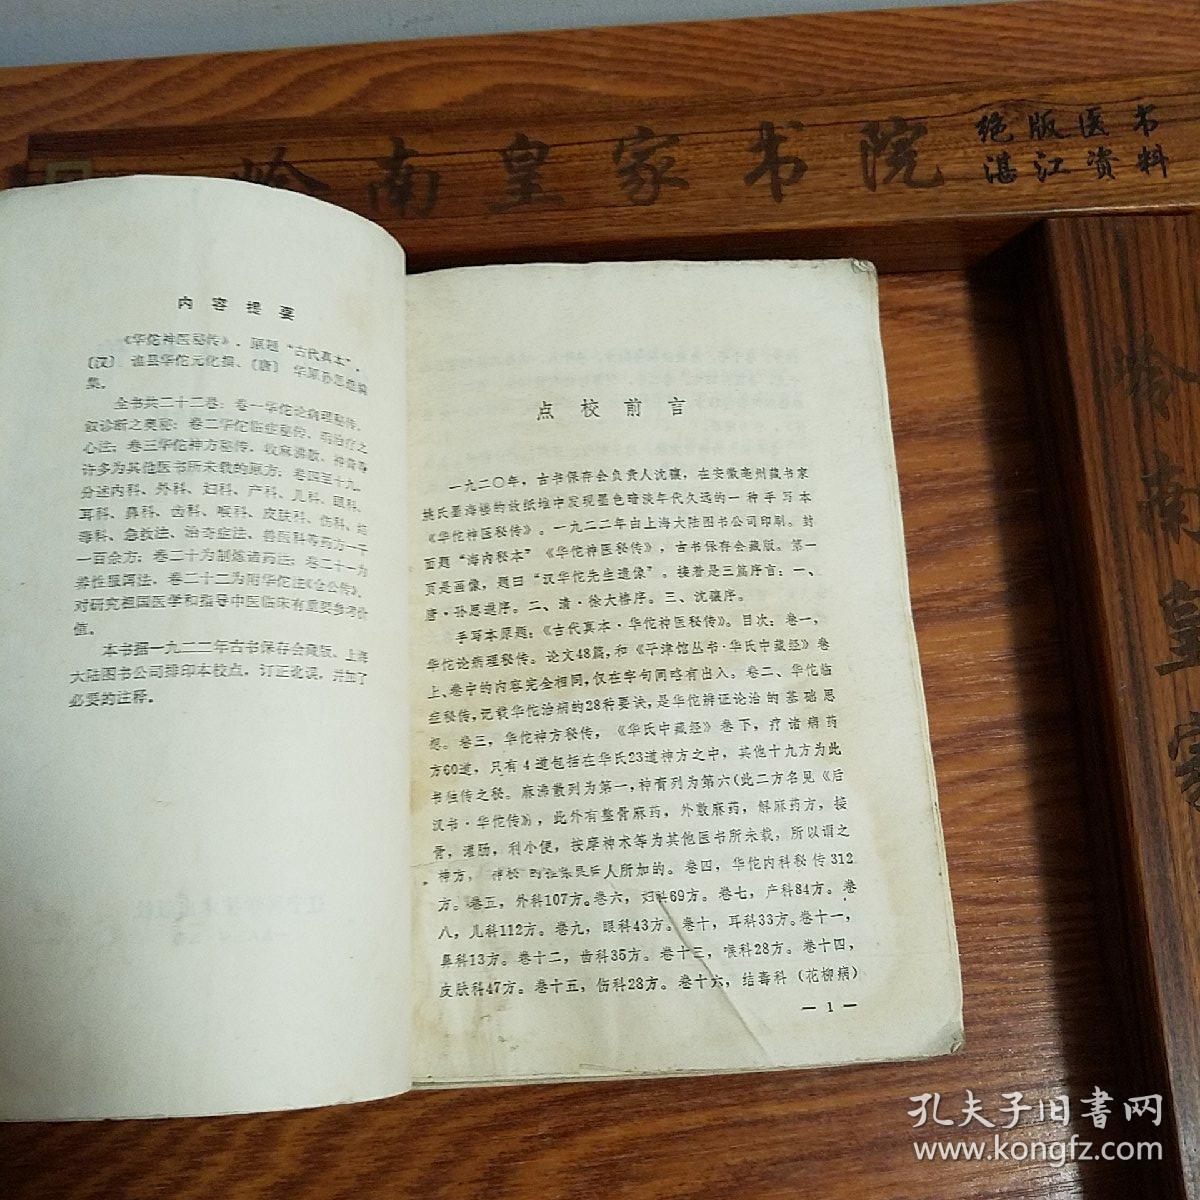 岭南皇家书院
绝版医书
湛江资料
内容提要
《华佗神医秘传》，原题“古代真本”，
〔汉〕谯县华佗元化撰、〔唐〕华原孙思邈编
集。
全书共二十二卷：卷一华佗论病理秘传，
叙诊断之奥秘；卷二华佗临症秘传，明治疗之
心法；卷三华佗神方秘传，收麻沸散、神膏等
许多为其他医书所未载的原方；卷四至十九，
分述内科、外科、妇科、产科、儿科、眼科、
耳科、鼻科、齿科、喉科、皮肤科、伤科、结
毒科、急救法、治奇症法、兽医科等药方一千
一百余方；卷二十为制炼诸药法；卷二十一为
养性服饵法，卷二十二为附华佗注《仓公传》，
对研究祖国医学和指导中医临床有重要参考价
值。
本书据一九二二年古书保存会藏版、上海
大陆图书公司排印本校点，订正讹误，并加了
必要的注释。
点校前言
一九二〇年，古书保存会负责人沈骧，在安徽亳州藏书家
姚氏墨海楼的故纸堆中发现墨色暗淡年代久远的一种手写本
《华佗神医秘传》。一九二二年由上海大陆图书公司印刷。封
面题“海内秘本”《华佗神医秘传》，古书保存会藏版。第一
页是画像，题曰“汉华佗先生遗像”。接着是三篇序言：一、
唐·孙思邈序。二、清·徐大椿序。三、沈骧序。
手写本原题：《古代真本·华佗神医秘传》。目次：卷一，
华佗论病理秘传。论文48篇，和《平津馆丛书·华氏中藏经》卷
上、卷中的内容完全相同，仅在字句间略有出入。卷二、华佗临
症秘传，记载华佗治病的28种要诀，是华佗辨证论治的基础思
想。卷三，华佗神方秘传，《华氏中藏经》卷下，疗诸病药
方60道，只有4道包括在华氏23道神方之中，其他十九方为此
书独传之秘。麻沸散列为第一，神膏列为第六（此二方名见《后
汉书·华佗传》），此外有整骨麻药，外敷麻药，解麻药方，接
骨，灌肠，利小便，按摩神术等为其他医书所未载，所以谓之
神方，神秘的征象是后人所加的。卷四，华佗内科秘传312
方。卷五，外科107方。卷六，妇科69方。卷七，产科84方。卷
八，儿科112方。卷九，眼科43方。卷十，耳科33方。卷十一，
鼻科13方。卷十二，齿科35方。卷十三，喉科28方。卷十四，
皮肤科47方。卷十五，伤科23方。卷十六，结毒科（花柳病）
— 1 —
岭南皇家
孔夫子旧書网
www.kongfz.com